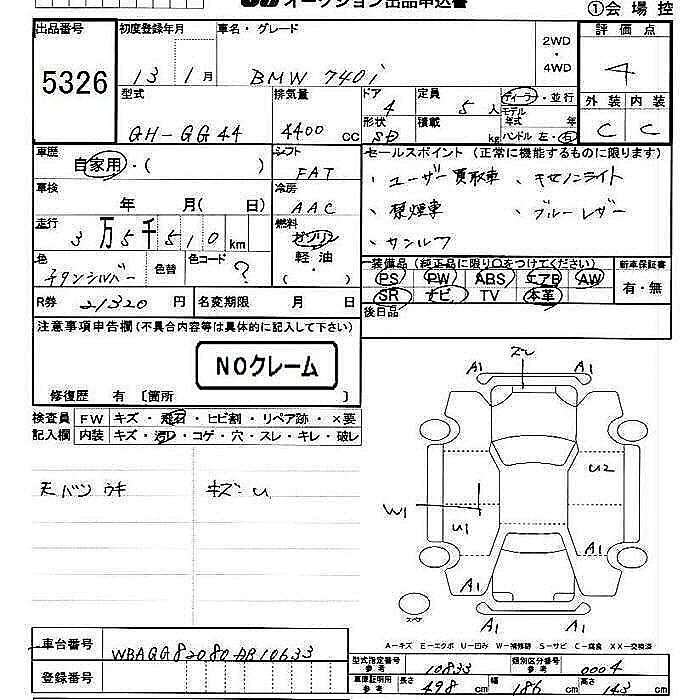 オークション出品申込書
①会場控
出品番号 初度登録年月 車名・グレード 評価点
5326 13 1月 BMW 740i 2WD・4WD 4
型式 排気量 ドア 定員 ディーラー・並行 外装 内装
GH-GG44 4400 cc 4 5人 モデル年式 年 C C
形状 積載 kg ハンドル 左・右
車歴 シフト セールスポイント(正常に機能するものに限ります)
自家用・( ) FAT 、ユーザー買取車 、キセノンライト
車検 冷房
年 月( 日) AAC 、禁煙車 、ブルーレザー
走行 燃料
3万5千510km ガソリン 、サンルーフ
色 色替 色コード 軽油 装備品(純正品に限り○をつけてください) 新車保証書
チタンシルバー ? ( ) PS PW ABS エアB AW 有・無
SR ナビ TV 本革
R券 21320円 名変期限 月 日 後日品
注意事項申告欄(不具合内容等は具体的に記入して下さい)
NOクレーム
修復歴 有 〔箇所 〕
検査員 FW キズ・飛石・ヒビ割・リペア跡・×要
記入欄 内装 キズ・汚レ・コゲ・穴・スレ・キレ・破レ
天バリ ウキ キズ・U
A1 A1
U2
W1
U1
A1
A1
スペア
A1 A1
A=キズ E=エクボ U=凹み W=補修跡 S=サビ C=腐食 XX=交換済
車台番号 WBAGG82080DB10633
登録番号
型式指定番号 参考 10833 類別区分番号 参考 0004
車庫証明用 参考 長さ 498cm 幅 186cm 高さ 143cm